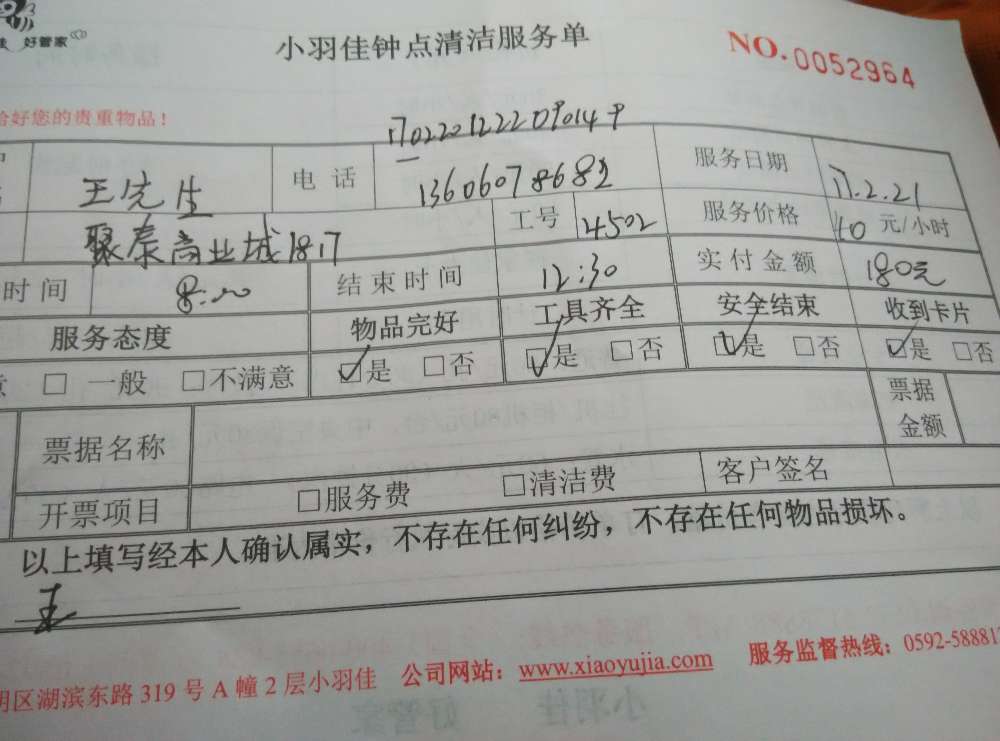 好管家
小羽佳钟点清洁服务单
NO.0052964
好您的贵重物品！
170220122209014
王先生 电话 13606078682 服务日期 17.2.21
聚泰商业城1817 工号 4502 服务价格 40 元/小时
时间 8:00 结束时间 12:30 实付金额 180元
服务态度 物品完好 工具齐全 安全结束 收到卡片
意 □ 一般 □不满意 ☑是 □否 ☑是 □否 ☑是 □否 ☑是 □否
票据名称 票据金额
开票项目 □服务费 □清洁费 客户签名
以上填写经本人确认属实，不存在任何纠纷，不存在任何物品损坏。
王
明区湖滨东路 319 号 A 幢 2 层小羽佳 公司网站：www.xiaoyujia.com 服务监督热线：0592-588817